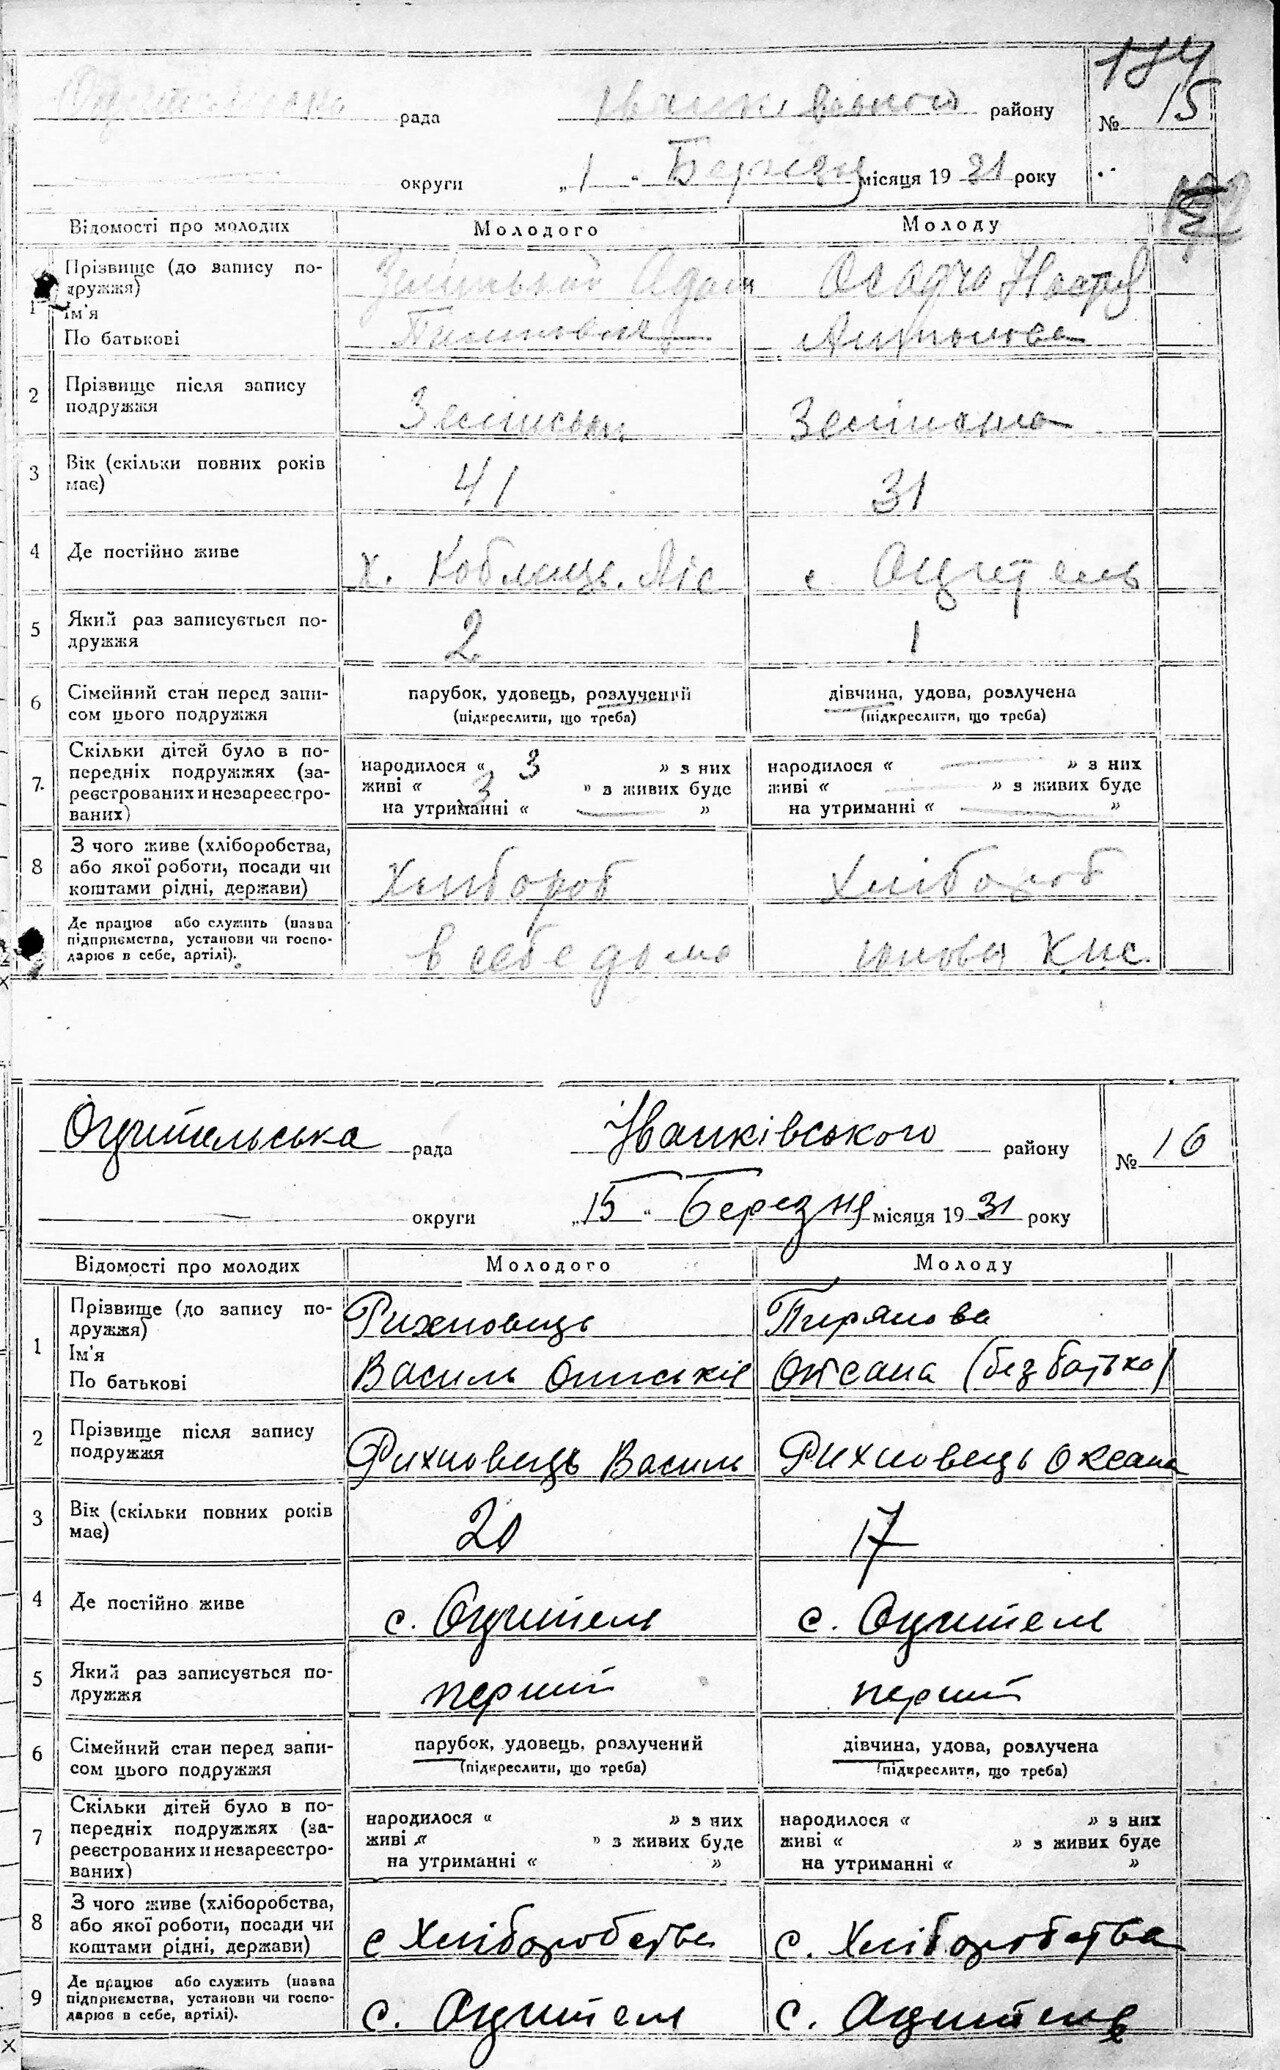 184
рада Іванківського району № 15
округи „ 1 “ Березня місяця 19 31 року
Відомості про молодих Молодого Молоду
1 Прізвище (до запису по-
дружжя)
Ім'я
По батькові
Адам
Осадча
2 Прізвище після запису
подружжя
3 Вік (скільки повних років
має)
41 31
4 Де постійно живе х. Ліс с. Оцитель
5 Який раз записується по-
дружжя
2 1
6 Сімейний стан перед запи-
сом цього подружжя
парубок, удовець, розлучений дівчина, удова, розлучена
(підкреслити, що треба) (підкреслити, що треба)
7. Скільки дітей було в по-
передніх подружжях (за-
реєстрованих и незареєстро-
ваних)
народилося « 3 » з них народилося « — » з них
живі « 3 » з живих буде живі « — » з живих буде
на утриманні « — » на утриманні « — »
8 З чого живе (хліборобства,
або якої роботи, посади чи
коштами рідні, держави)
Хлібороб Хлібороб
Де працює або служить (назва
підприємства, установи чи госпо-
дарює в себе, артілі).
в себе дома
Оцительська рада Іванківського району № 16
округи „ 15 “ Березня місяця 19 31 року
Відомості про молодих Молодого Молоду
1 Прізвище (до запису по-
дружжя)
Ім'я
По батькові
Рихновець
Василь Ониськів Оксана (без батька)
2 Прізвище після запису
подружжя
Рихновець Василь Рихновець Оксана
3 Вік (скільки повних років
має)
20 17
4 Де постійно живе с. Оцитель с. Оцитель
5 Який раз записується по-
дружжя
перший перший
6 Сімейний стан перед запи-
сом цього подружжя
парубок, удовець, розлучений дівчина, удова, розлучена
(підкреслити, що треба) (підкреслити, що треба)
7 Скільки дітей було в по-
передніх подружжях (за-
реєстрованих и незареєстро-
ваних)
народилося « » з них народилося « » з них
живі « » з живих буде живі « » з живих буде
на утриманні « » на утриманні « »
8 З чого живе (хліборобства,
або якої роботи, посади чи
коштами рідні, держави)
с Хліборобства с. Хліборобства
9 Де працює або служить (назва
підприємства, установи чи госпо-
дарює в себе, артілі).
с. Оцитель с. Оцитель